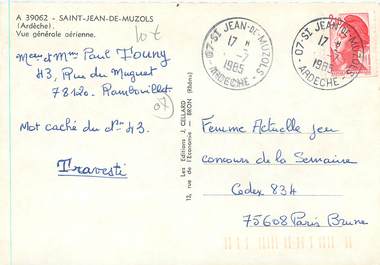 A 39062 - SAINT-JEAN-DE-MUZOLS
(Ardèche).
Vue générale aérienne.
Meur et Mme Paul Founy
43, Rue du Muguet
78120. Rambouillet
Mot caché du N° 43.
Travesti
13, rue de l'Economie — BRON (Rhône)
Les Editions J. CELLARD
07-ST JEAN-DE-MUZOLS
17 H
-7
1985
- ARDECHE -
07-ST JEAN-DE-MUZOLS
17 H
-7
1985
- ARDECHE -
Femme Actuelle Jeu
concours de la Semaine
Cedex 834
75608 Paris Brune